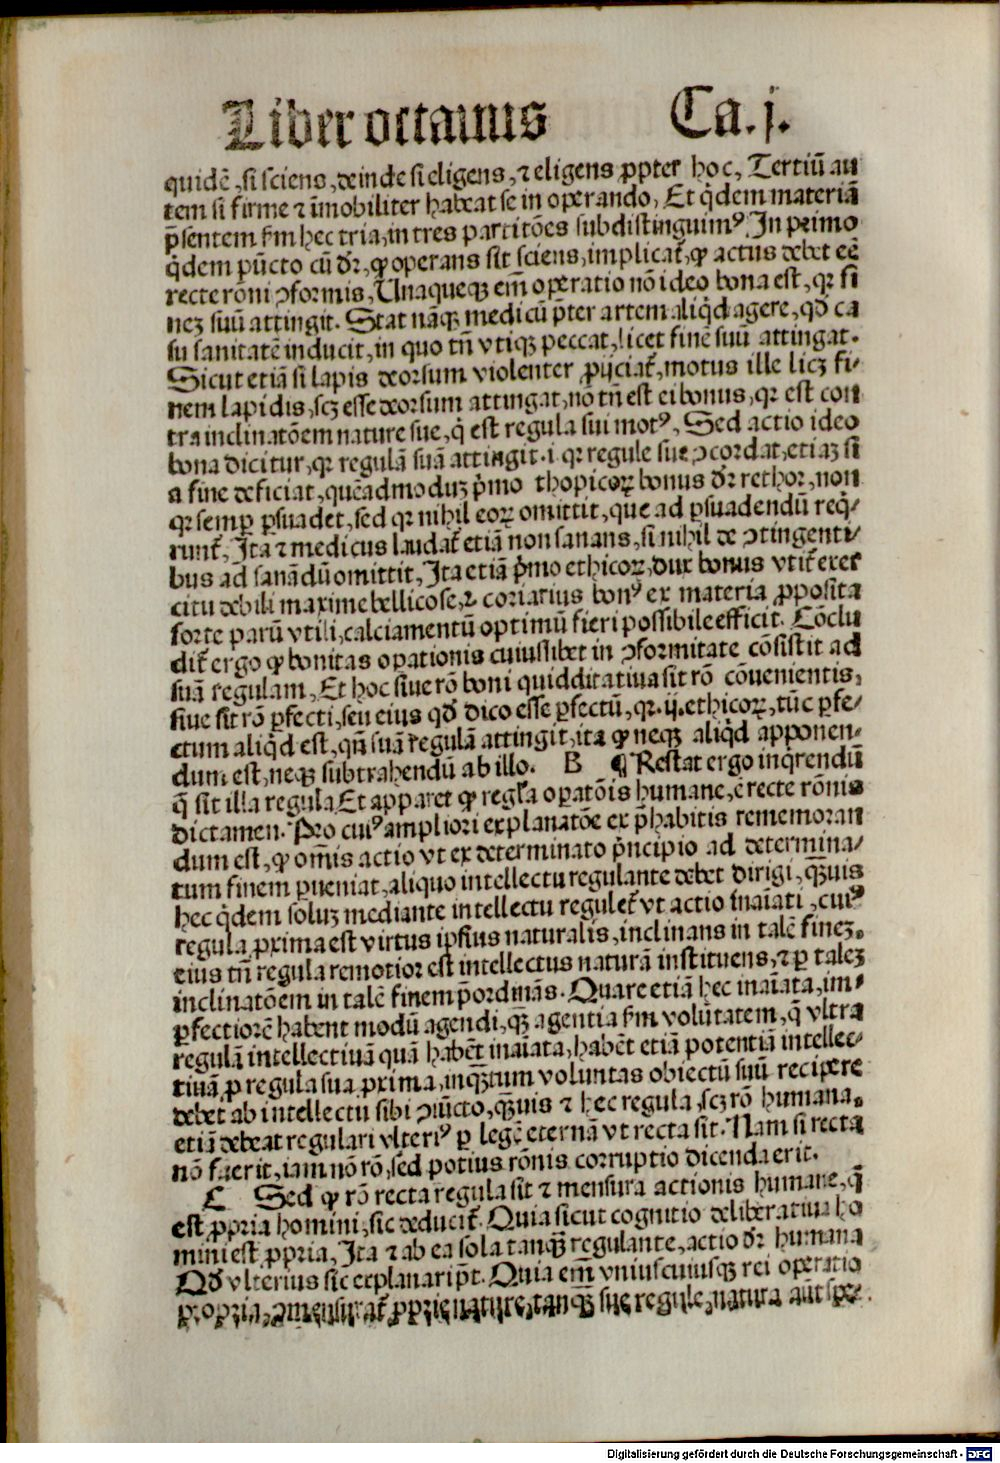 Liber octauus Ca. j.
quidē, si sciens, deinde si eligens, ⁊ eligens ꝓpter hoc, Tertiū au
tem si firme ⁊ īmobiliter habeat se in operando, Et q̇dem materiā
p̄sentem fm hec tria, in tres partitōes subdistinguimꝰ. In primo
q̇dem pūcto cū dr̄, ꝙ operans sit sciens, implicat᷑, ꝙ actus debet eē
recte rōni ꝯformis, Unaqueqꝫ em̄ operatio nō ideo bona est, qꝛ fi
neꝫ suū attingit. Stat nāqꝫ medicū p̄ter artem aliq̇d agere, qd̓ ca
su sanitatē inducit, in quo tn̄ vtiqꝫ peccat, licet finē suū attingat.
Sicut etiā si lapis deorsum violenter ꝓijciat᷑, motus ille licꝫ fi-
nem lapidis, scꝫ esse deorsum attingat, no tn̄ est ei bonus, qꝛ est con
tra inclinatōem nature sue, q̄ est regula sui motꝰ, Sed actio ideo
bona dicitur, qꝛ regulā suā attingit .i. qꝛ regule sue ꝯcordat, etiaꝫ si
a fine deficiat, quēadmoduꝫ p̄mo thopicoꝝ bonus dr̄ rethor, non
qꝛ semꝑ ꝑsuadet, sed qꝛ nihil eoꝝ omittit, que ad ꝑsuadendū req̇-
runt᷑, Ita ⁊ medicus laudat᷑ etiā non sanans, si nihil de ꝯtingenti-
bus ad sanādū omittit, Ita etiā p̄mo ethicoꝝ, dux bonus vtit᷑ exer
citu debili maxime bellicose, ⁊ coriarius bonꝰ ex materia ꝓposita
forte parū vtili, calciamentū optimū fieri possibile efficit. Cōclu
dit᷑ ergo ꝙ bonitas oꝑationis cuiuslibet in ꝯformitate cōsistit ad
suā regulam, Et hoc siue rō boni quidditatiua sit rō cōuenientis,
siue sit rō ꝑfecti, seu eius qd̓ dico esse ꝑfectū, qꝛ .ij. ethicoꝝ, tūc ꝑfe-
ctum aliq̇d est, qn̄ suā regulā attingit, ita ꝙ neqꝫ aliq̇d apponen-
dum est, neqꝫ subtrahendū ab illo. B ¶ Restat ergo inq̇rendū
q̄ sit illa regula Et apparet ꝙ regl̓a oꝑatōis humane, ē recte rōnis
dictamen. Pro cuiꝰ ampliori explanatōe ex p̄habitis rememoran
dum est, ꝙ om̄is actio vt ex determinato p̄ncipio ad determina-
tum finem ꝑueniat, aliquo intellectu regulante debet dirigi, qꝫuis
hec q̇dem soluꝫ mediante intellectu regulet᷑ vt actio īnaīati, cuiꝰ
regula ꝓxima est virtus ipsius naturalis, inclinans in talē fineꝫ.
eius tn̄ regula remotior est intellectus naturā instituens, ⁊ ꝑ taleꝫ
inclinatōem in talē finem p̄ordināns. Quare etiā hec inaīata, im-
ꝑfectiorē habent modū agendi, qꝫ agentia fm volūtatem, q̄ vltra
regulā intellectiuā quā habēt inaīata, habēt etiā potentiā intellec-
tiuā ꝓ regula sua ꝓxima, inqꝫtum voluntas obiectū suū recipere
debet ab intellectu sibi ꝯiūcto, qꝫuis ⁊ hec regula, scꝫ rō humana.
etiā debeat regulari vlteriꝰ ꝑ legē eternā vt recta sit. Nam si recta
nō fuerit, iam nō rō, sed potius rōnis corruptio dicenda erit.
C Sed ꝙ rō recta regula sit ⁊ mensura actionis humane, q̄
est ꝓpria homini, sic deducit᷑. Quia sicut cognitio deliberatiua ho
mini est ꝓpria, Ita ⁊ ab ea sola tanqꝫ regulante, actio dr̄ humana
Qd̓ vlterius sic explanari pt̄. Quia em̄ vniuscuiusqꝫ rei operatio
propria, ꝯmensurat᷑ ꝓprie nature, tanqꝫ sue regule, natura aūt spe-
Digitalisierung gefördert durch die Deutsche Forschungsgemeinschaft - DFG